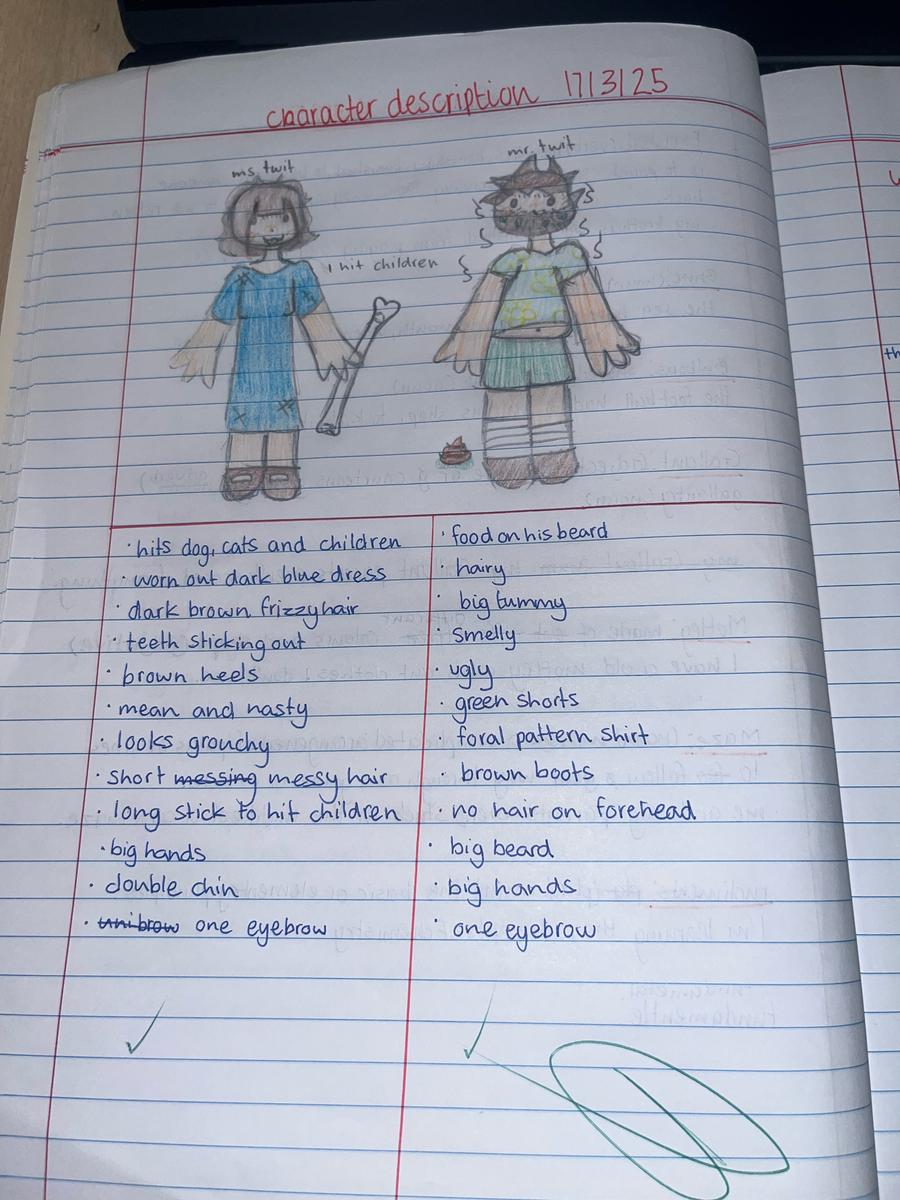 character description 17/3/25
ms. twit
mr. twit
I hit children
· hits dog, cats and children
· worn out dark blue dress
· dark brown frizzy hair
· teeth sticking out
· brown heels
· mean and nasty
· looks grouchy
· short messing messy hair
· long stick to hit children
· big hands
· double chin
· unibrow one eyebrow
· food on his beard
· hairy
· big tummy
· smelly
· ugly
· green shorts
· foral pattern shirt
· brown boots
· no hair on forehead
· big beard
· big hands
· one eyebrow
th